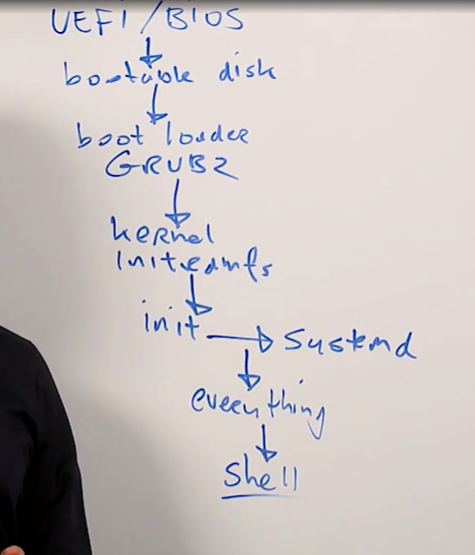 UEFI/BIOS
bootable disk
boot loader
GRUB2
kernel
initramfs
init → systemd
everything
shell